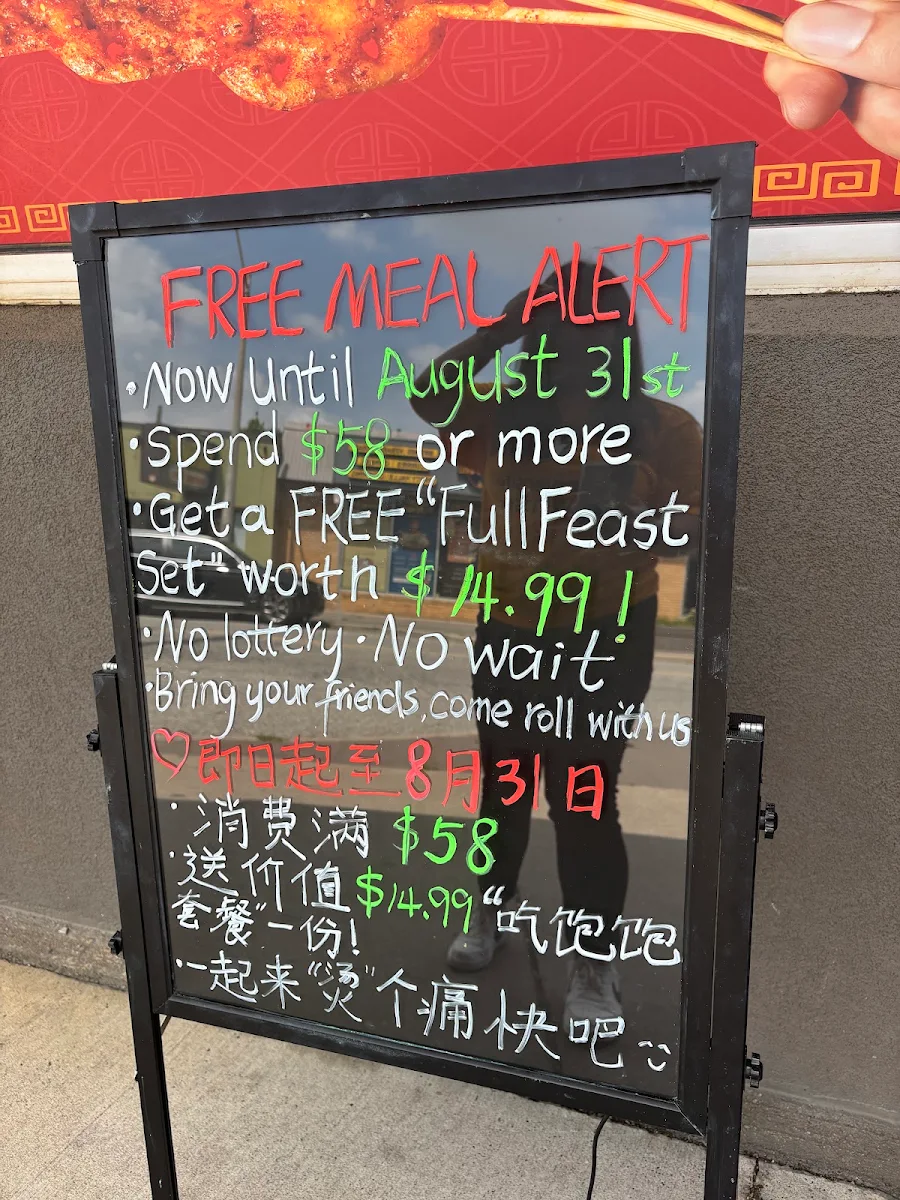 FREE MEAL ALERT
• Now Until August 31st
• Spend $58 or more
• Get a FREE "Full Feast
Set" worth $14.99!
• No lottery • No wait
• Bring your friends, come roll with us
♡即日起至8月31日
• 消费满 $58
• 送价值$14.99 "吃饱饱
套餐"一份!
• 一起来"烫"个痛快吧